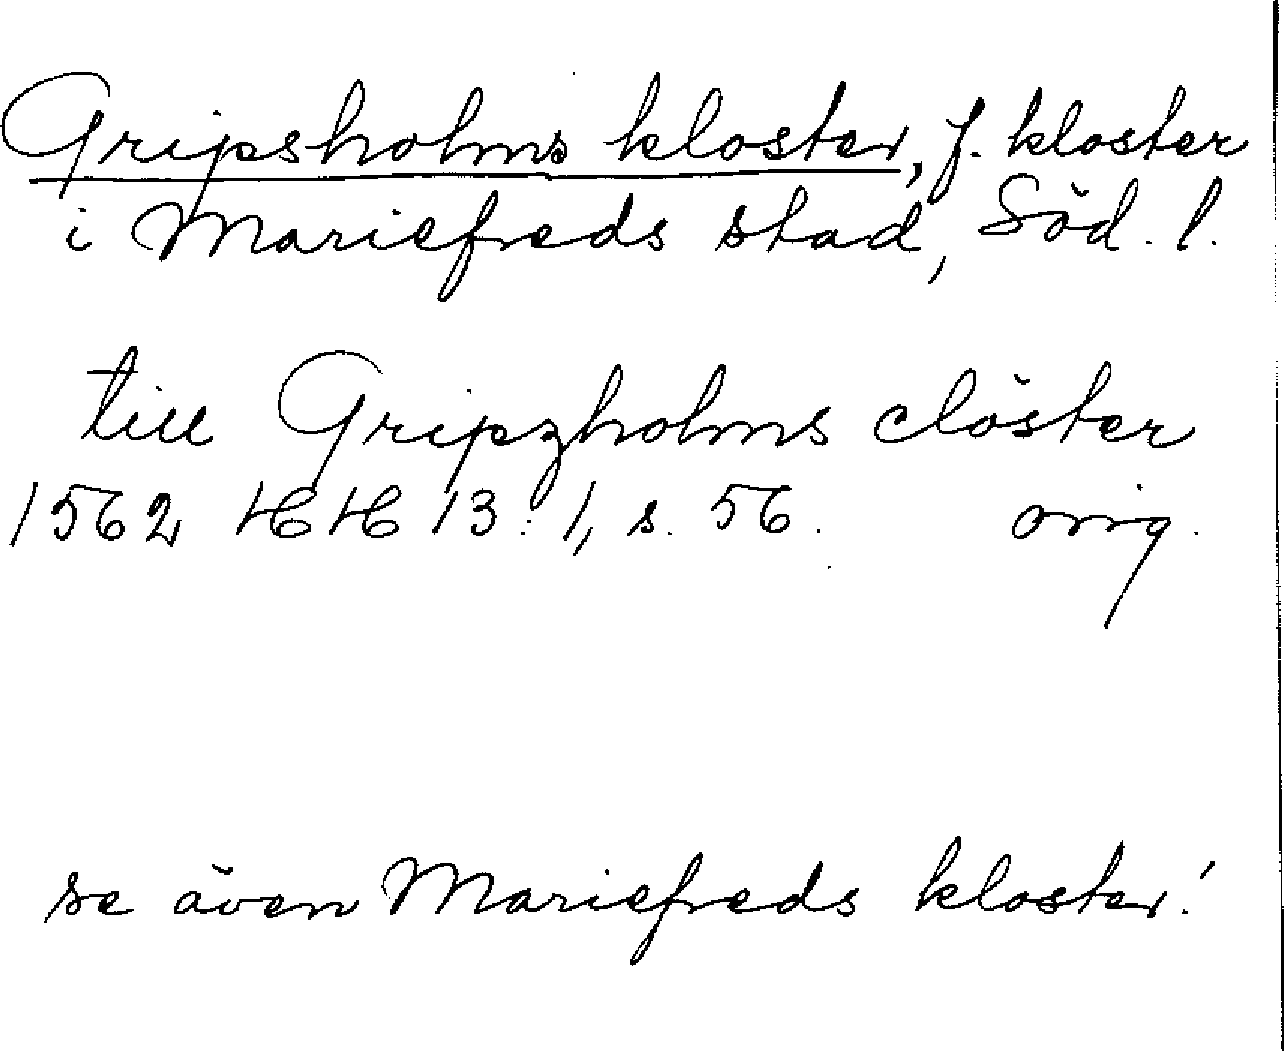 Gripsholms kloster, f. kloster
i Mariefreds stad, Söd. l.
till Gripzholms clöster
1562 HH 13:1, s. 56. orig.
se även Mariefreds kloster!